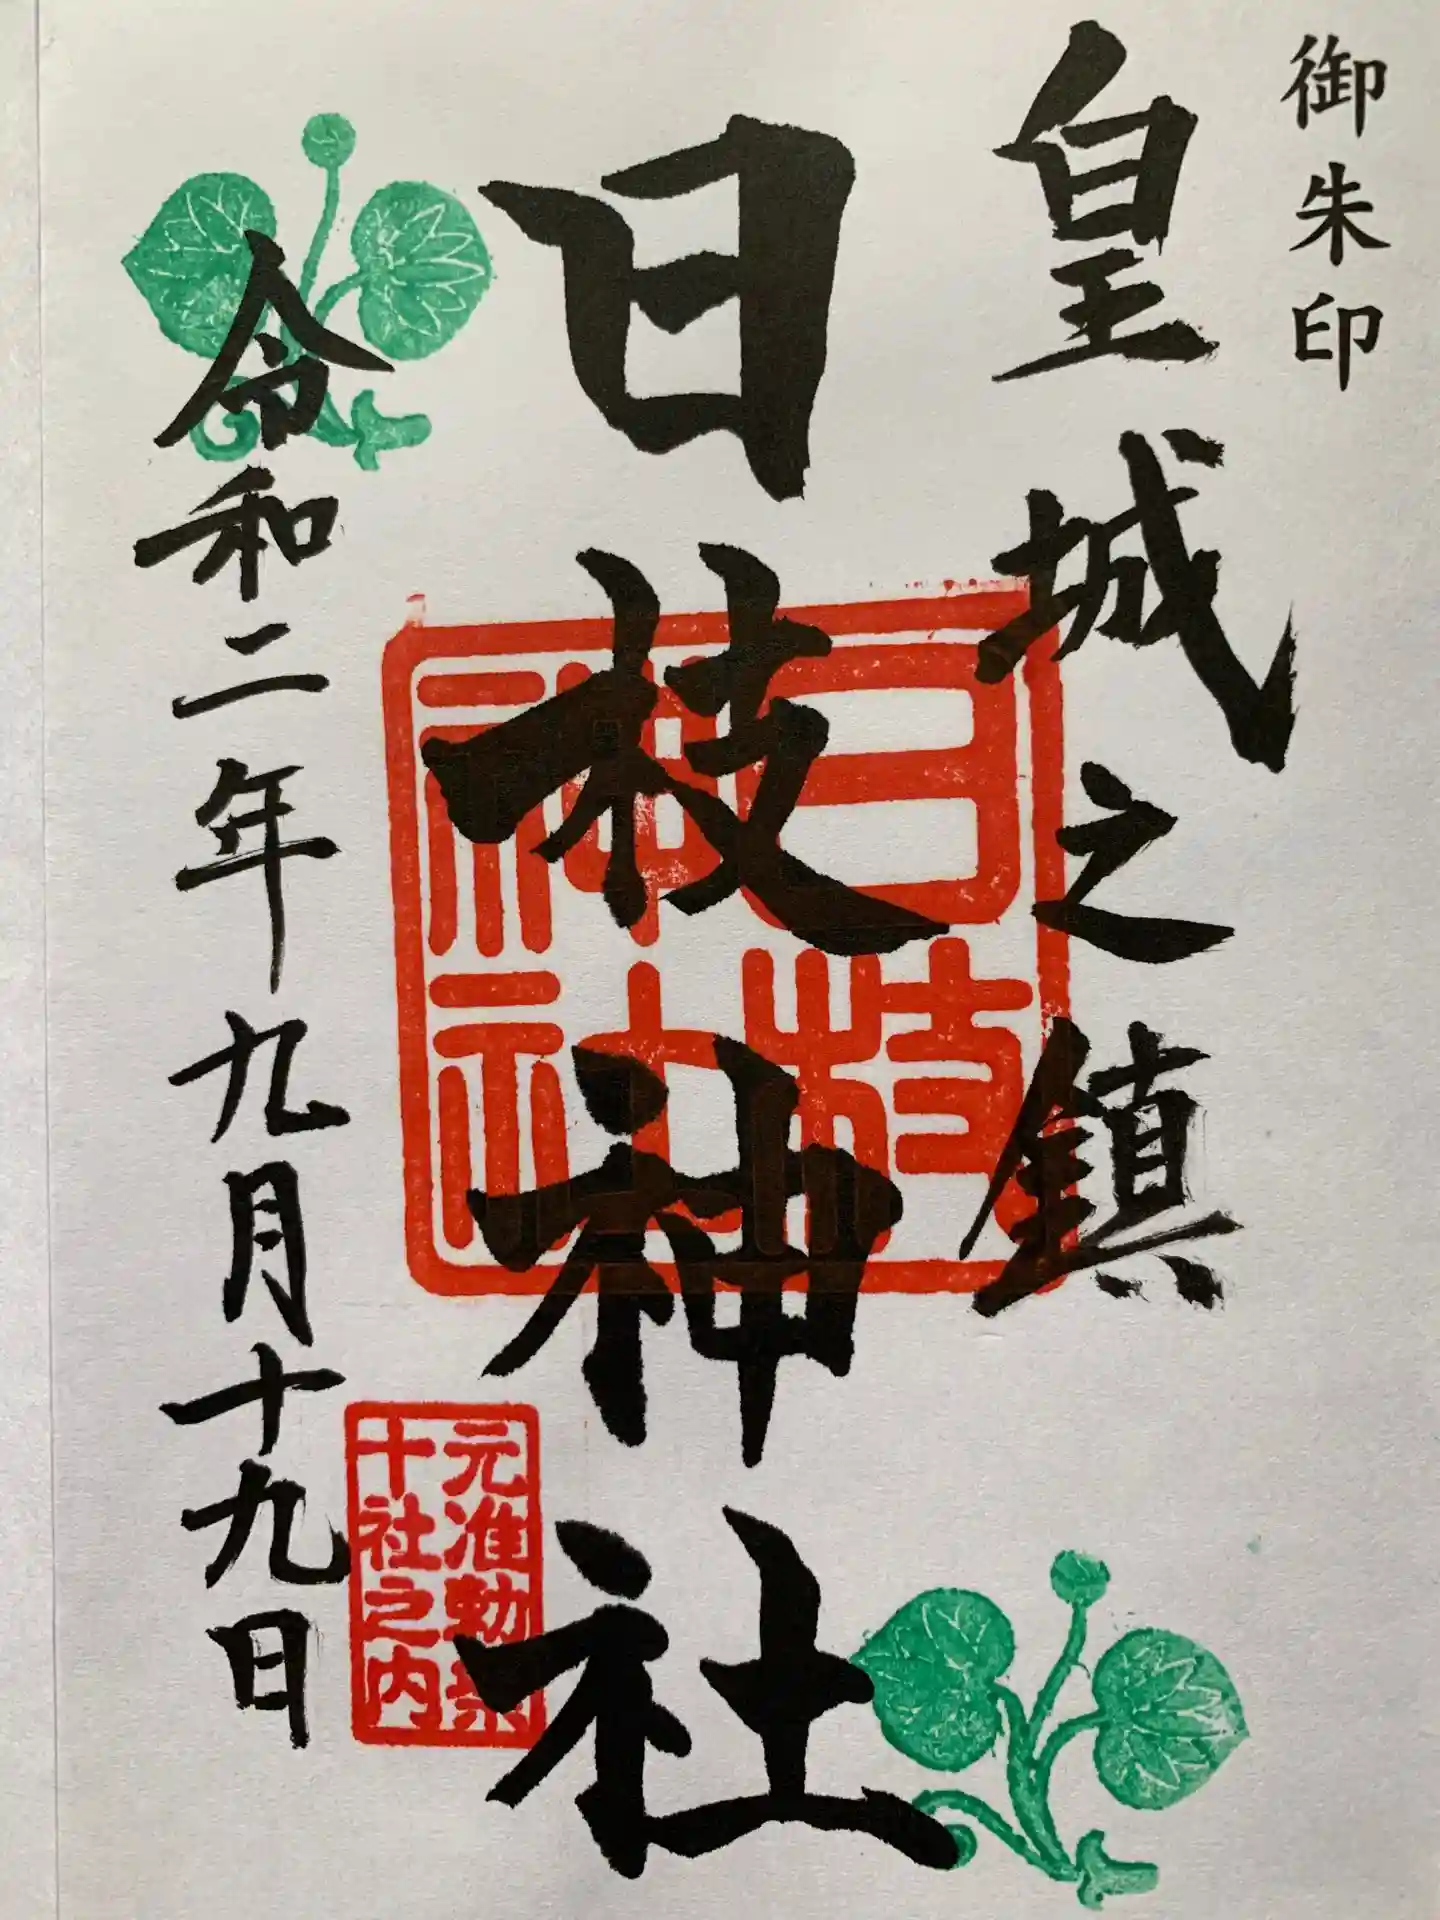 御朱印
皇城之鎮
日枝神社
日枝
神社
元准勅祭
十社之内
令和二年九月十九日